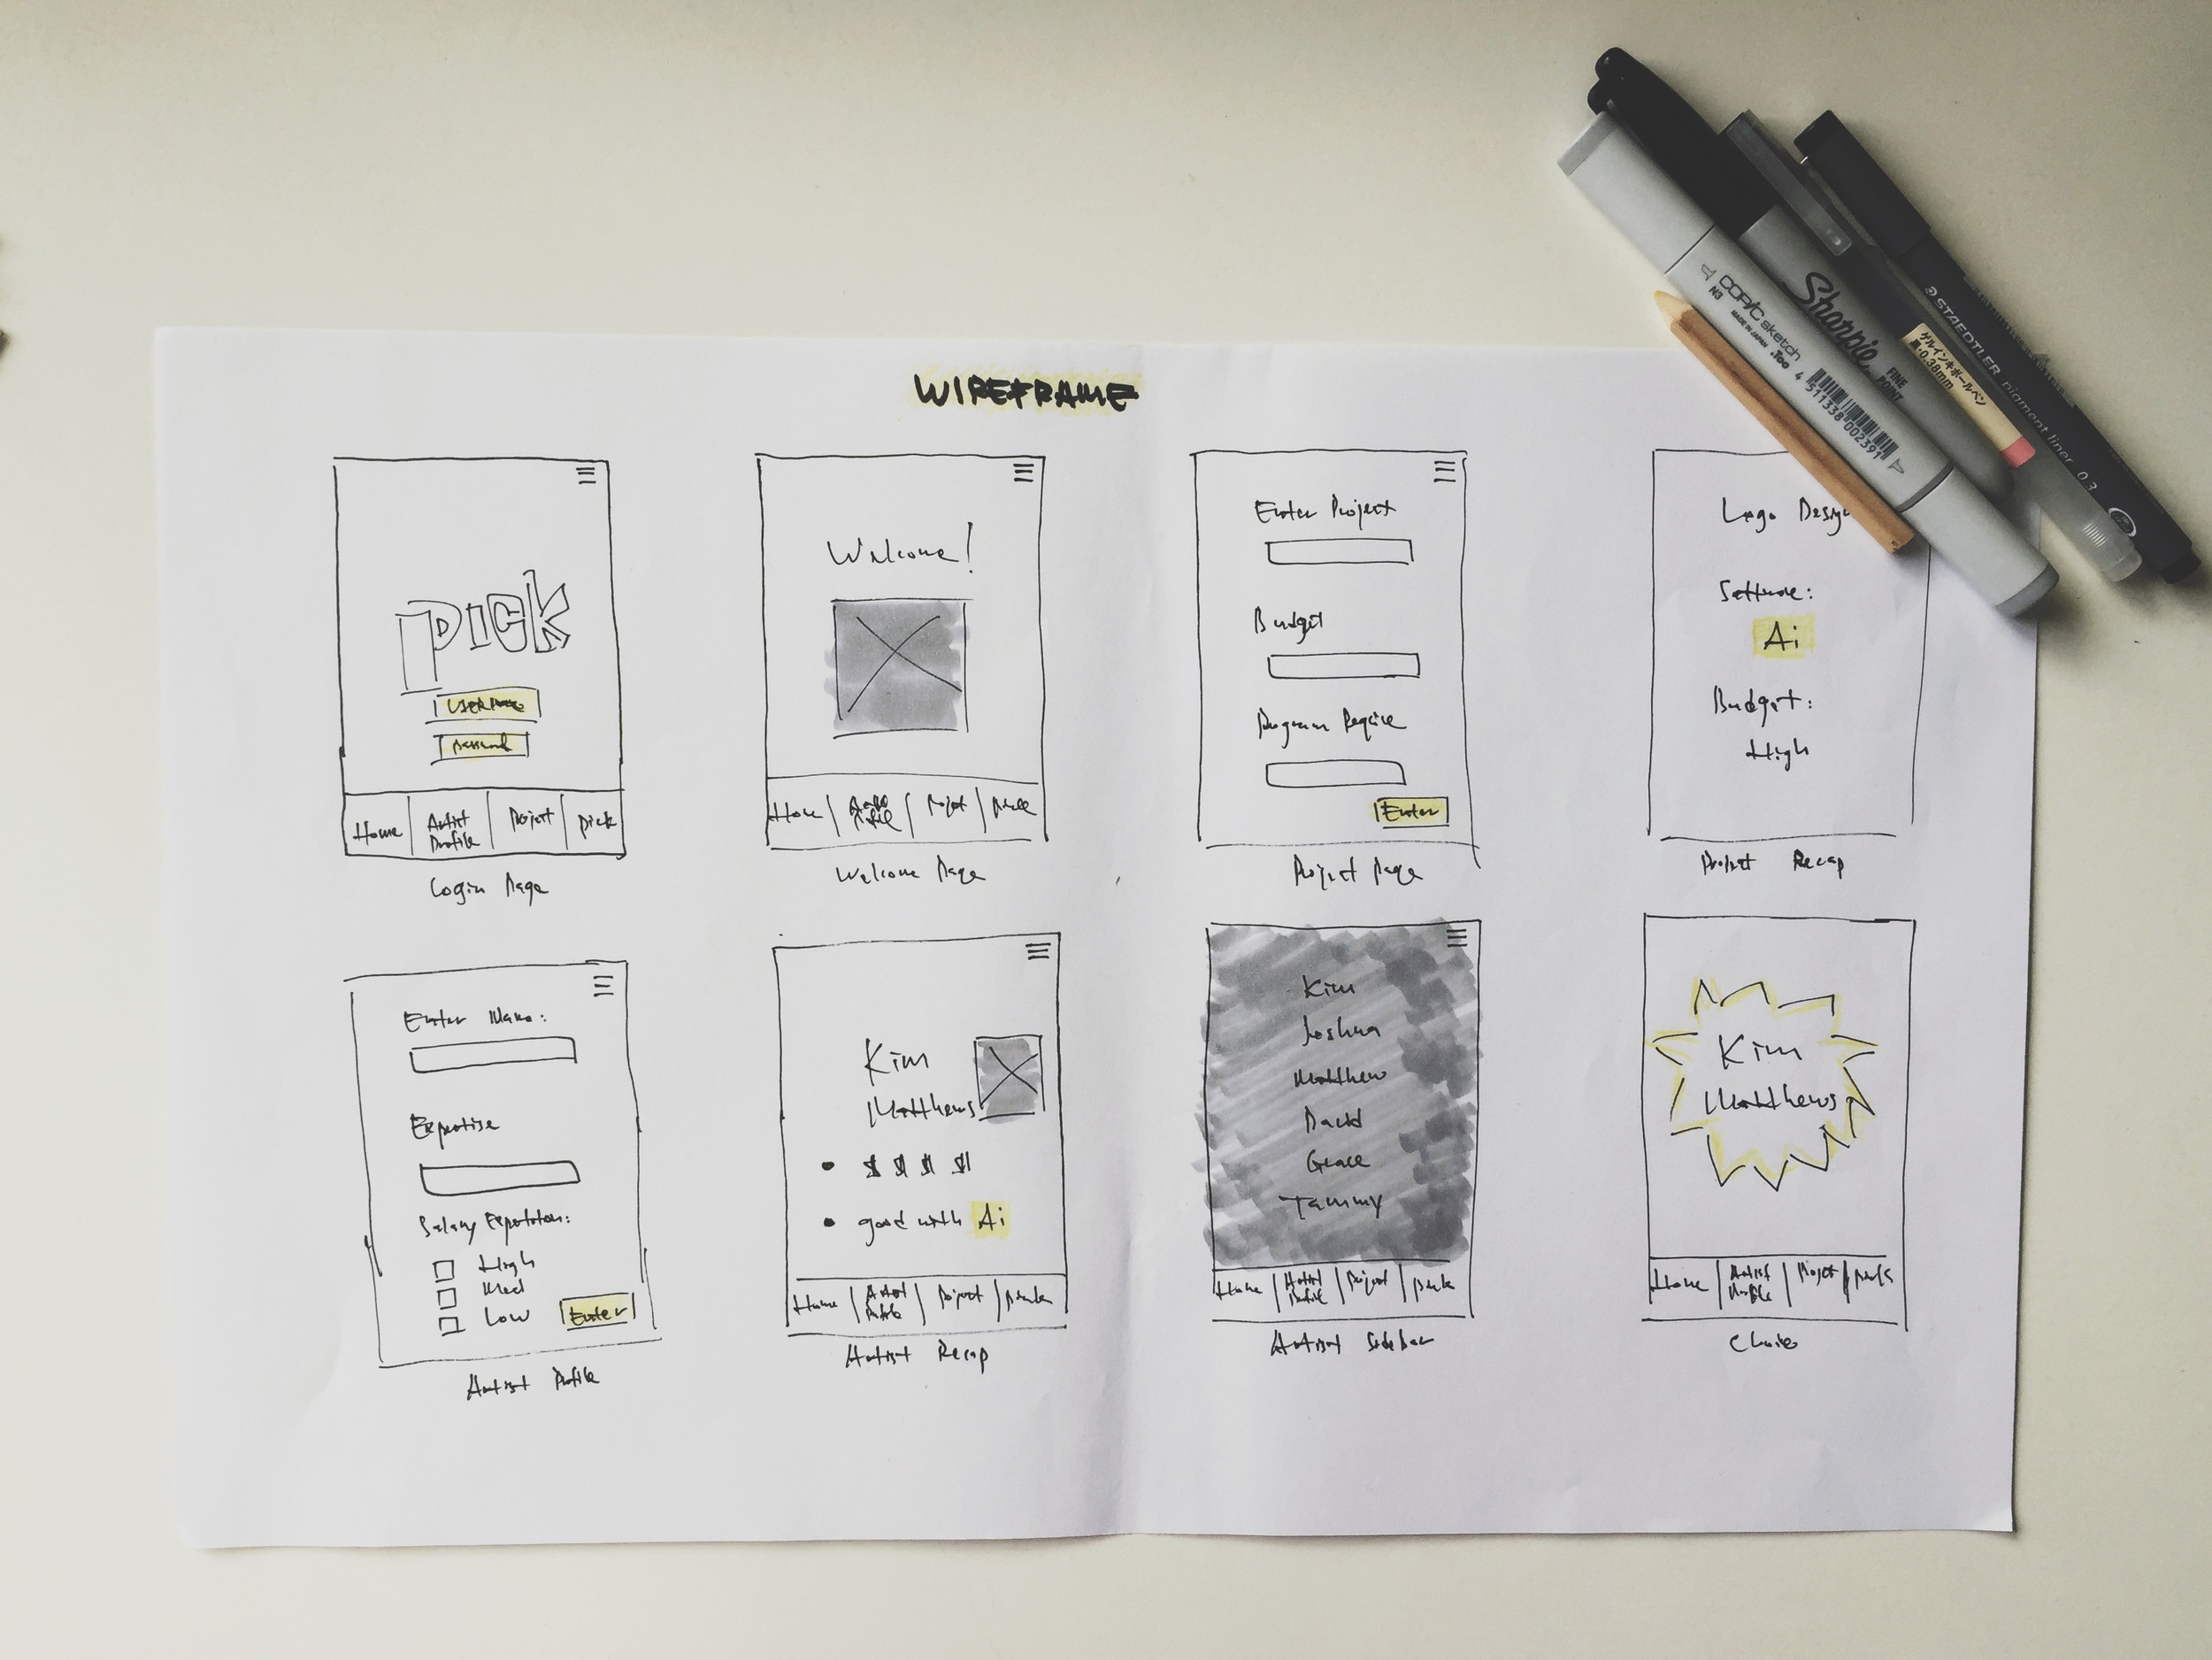 WIREFRAME
PICK
USERName
Password
Home
Artist
Profile
Project
Pick
Login Page
Welcome!
Home
Artist
Profile
Project
Welcome Page
Enter Project
Budget
Program Require
Enter
Project Page
Logo Design
Software:
Ai
Budget:
High
Project Recap
Enter Name:
Expertise
Salary
High
Med
Low
Enter
Artist Profile
Kim
Matthews
$ $ $ $
good with Ai
Home
Artist
Project
Artist Recap
Kim
Joshua
Matthew
David
Grace
Tammy
Home
Artist
Profile
Project
Artist Sidebar
Kim
Matthews
Home
Artist
Profile
Project
COPIC sketch
N3
MADE IN JAPAN .Too
4 511338 002391
Sharpie
FINE
POINT
ゲルインキボールペン
黒・0.38mm
STAEDTLER pigment liner 0.3